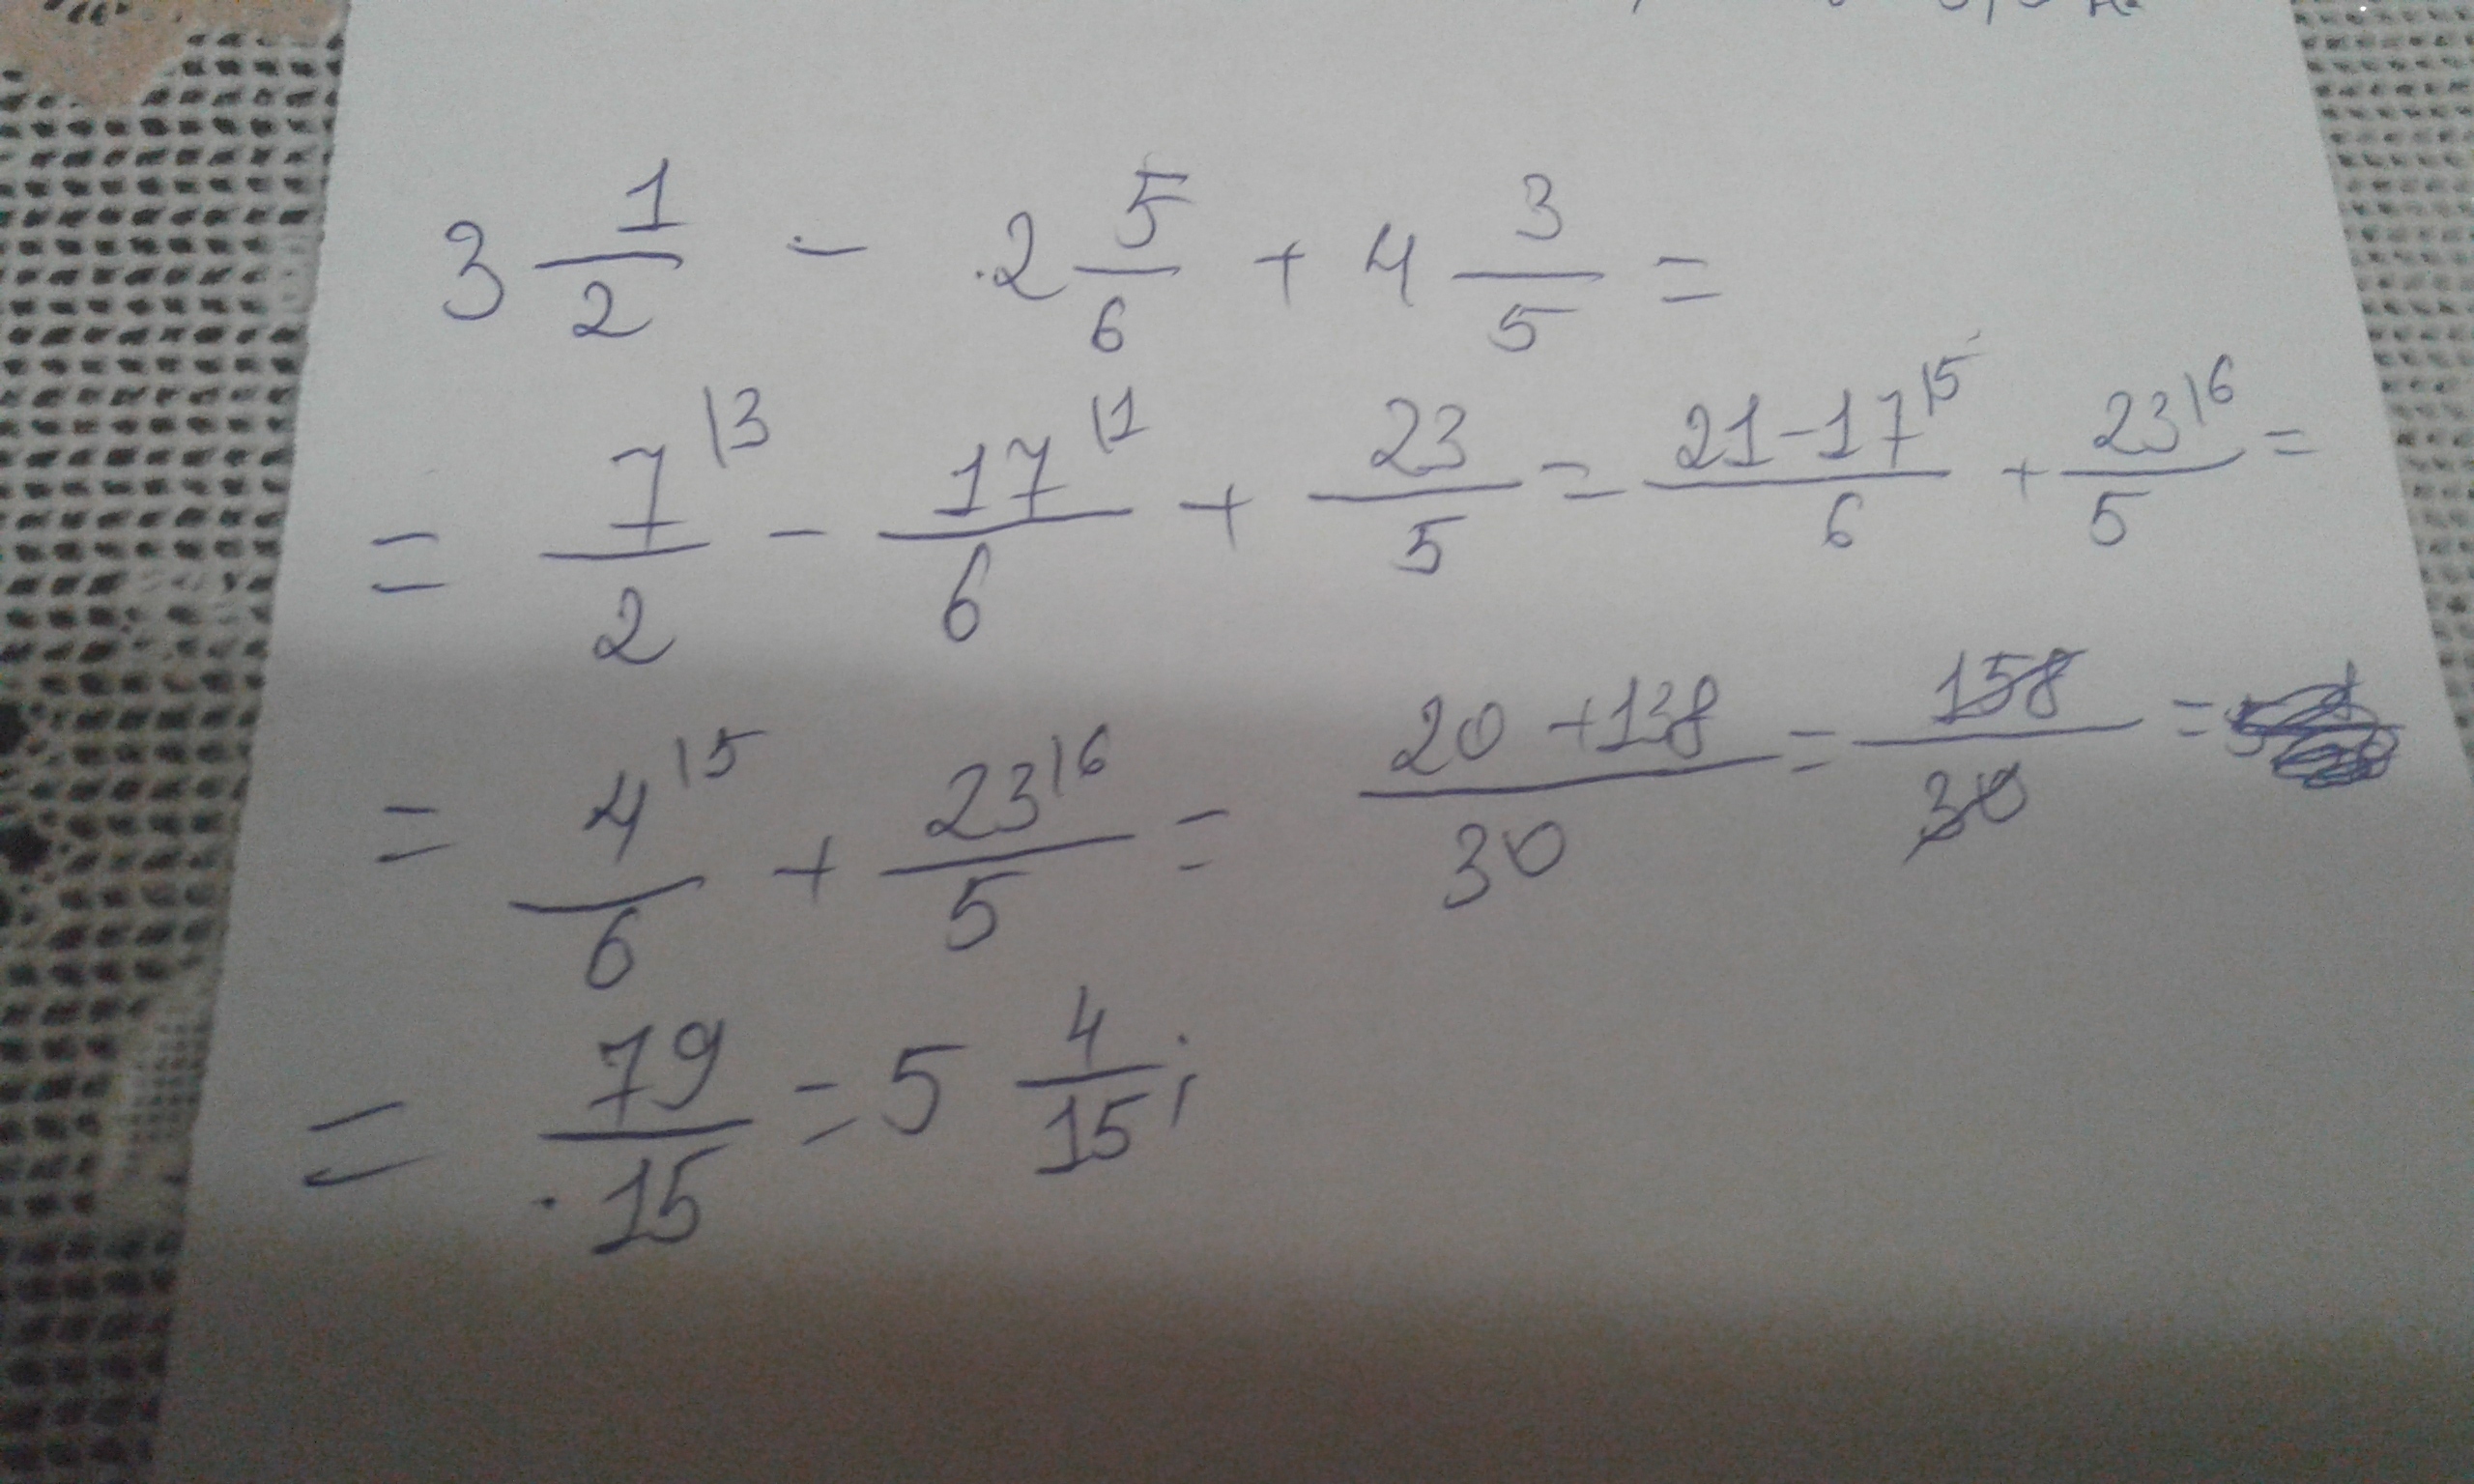 3 1/2 - 2 5/6 + 4 3/5 =
= 7\3/2 - 17\1/6 + 23/5 = 21-17\5/6 + 23\6/5 =
= 4\5/6 + 23\6/5 = 20+138/30 = 158/30 =
= 79/15 = 5 4/15;